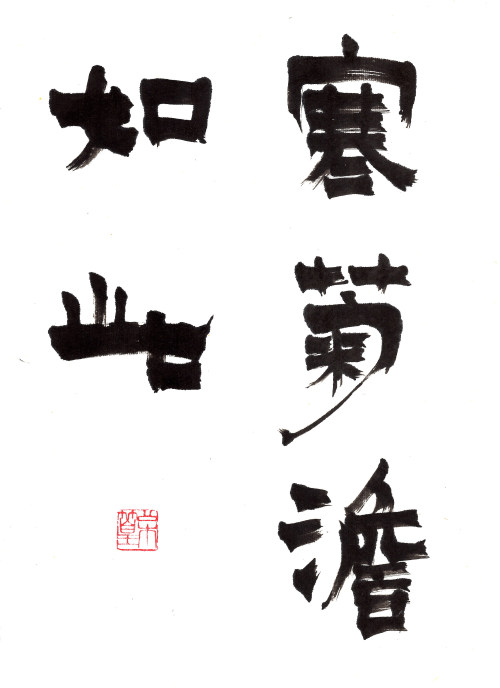 寒菊澹
如此